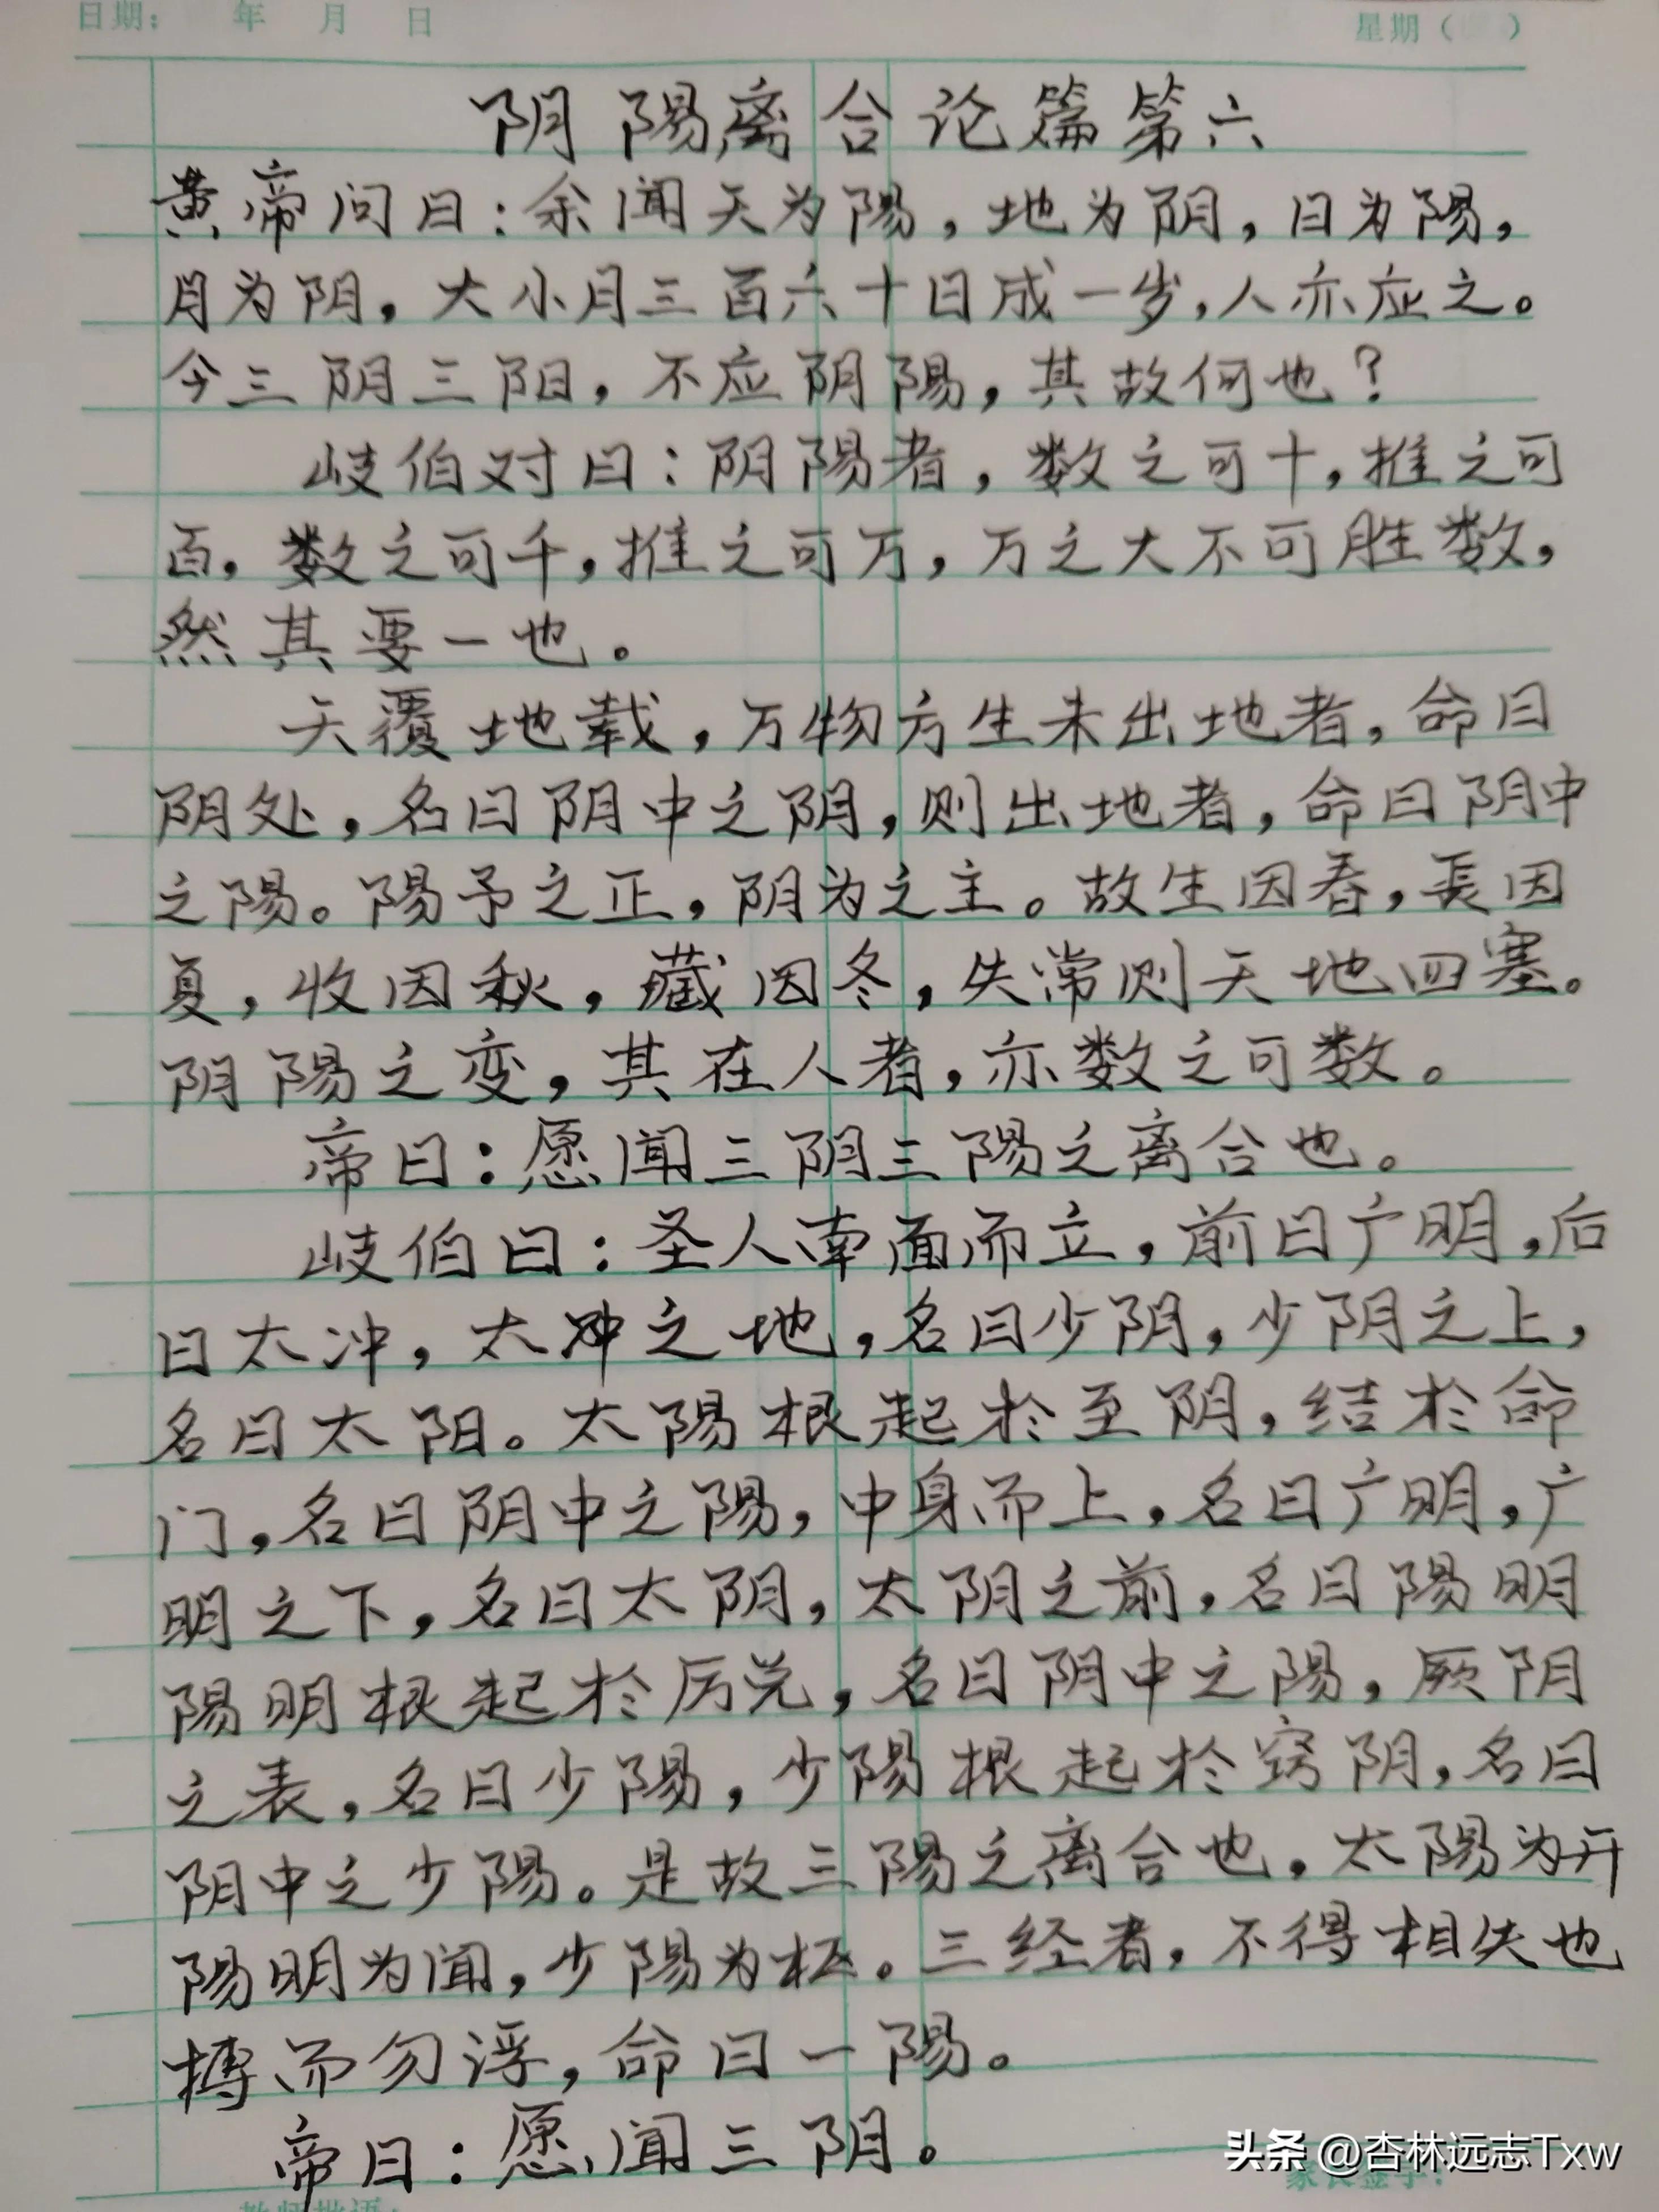 日期： 年 月 日 星期（ ）
阴陽离合论篇第六
黄帝问曰：余闻天为陽，地为阴，日为陽，
月为阴，大小月三百六十日成一岁，人亦应之。
今三阴三阳，不应阴陽，其故何也？
岐伯对曰：阴陽者，数之可十，推之可
百，数之可千，推之可万，万之大不可胜数，
然其要一也。
天覆地载，万物方生未出地者，命曰
阴处，名曰阴中之阴，则出地者，命曰阴中
之陽。陽予之正，阴为之主。故生因春，长因
夏，收因秋，藏因冬，失常则天地四塞。
阴陽之变，其在人者，亦数之可数。
帝曰：愿闻三阴三陽之离合也。
岐伯曰：圣人南面而立，前曰广明，后
曰太冲，太冲之地，名曰少阴，少阴之上，
名曰太阳。太陽根起於至阴，结於命
门，名曰阴中之陽，中身而上，名曰广明，广
明之下，名曰太阴，太阴之前，名曰陽明
陽明根起於厉兑，名曰阴中之陽，厥阴
之表，名曰少陽，少陽根起於窍阴，名曰
阴中之少陽。是故三陽之离合也，太陽为开
陽明为闻，少陽为枢。三经者，不得相失也
搏而勿浮，命曰一陽。
帝曰：愿闻三阴。
头条 @杏林远志Txw